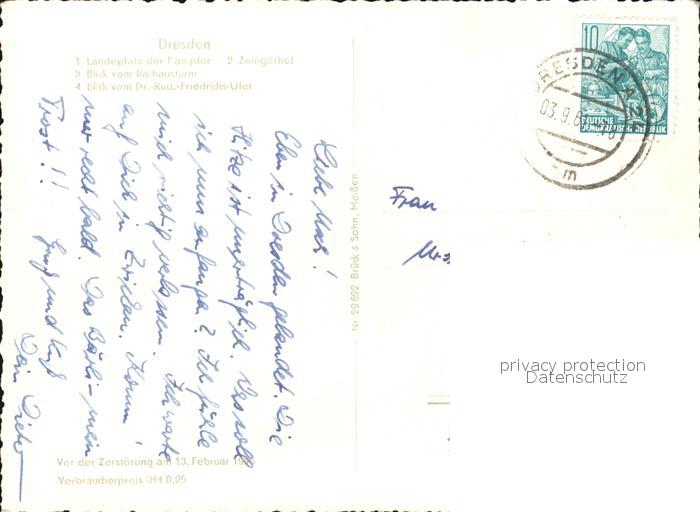 Dresden
1 Landeplatz der Dampfer 2 Zwingerhof
3 Blick vom Rathausturm
4 Blick vom Dr.-Rud.-Friedrichs-Ufer
Eben in Dresden gelandet. Die
Hitze ist unerträglich. Was soll
ich nun anfangen? Ich fühle
mich richtig verlassen. Ich warte
auf Dich in Zwickau. Komm
nur recht bald. Das Bärli – mein
Trost!! Gruß und Kuß
Dein Dieter
Vor der Zerstörung am 13. Februar
Verbraucherpreis DM 0,25
Nr. 29692 Brück & Sohn, Meißen
10
DEUTSCHE
DEMOKRATISCHE REPUBLIK
DRESDEN A
03.9.6
m
Frau
privacy protection
Datenschutz